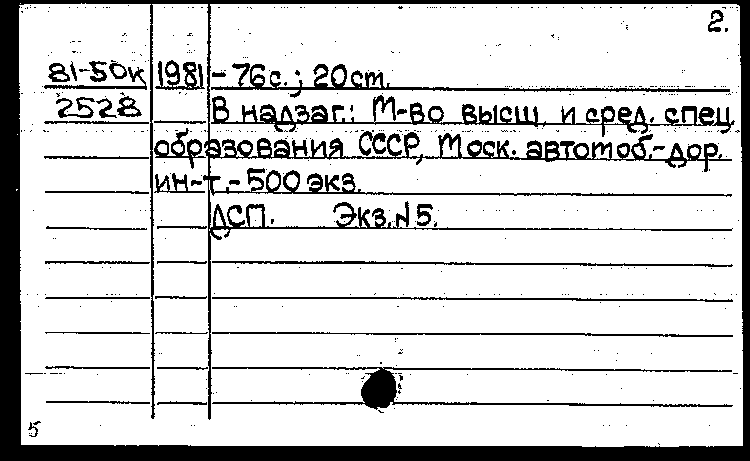 2.
81-50к 1981 - 76 с.; 20 cm.
2528 В надзаг.: М-во высш. и сред. спец.
образования СССР, Моск. автомоб.-дор.
ин-т. - 500 экз.
ДСП. Экз. N 5.
5